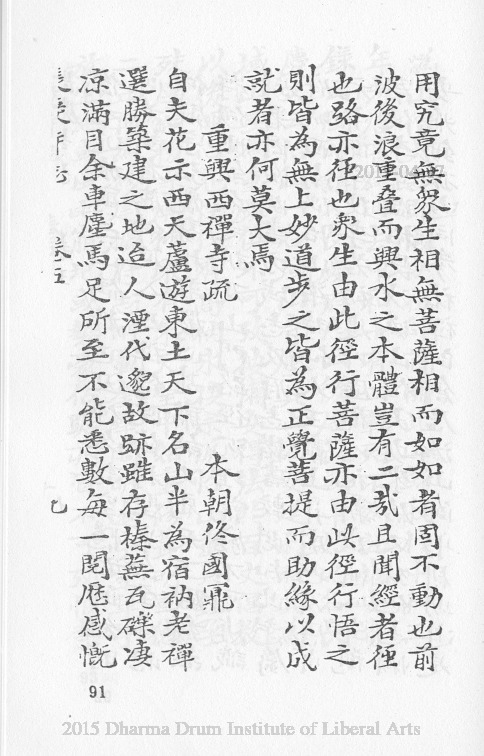 用究竟無眾生相無菩薩相而如如者固不動也前
波後浪重疊而興水之本體豈有二哉且聞經者徑
也路亦徑也眾生由此徑行菩薩亦由此徑行悟之
則皆為無上妙道步之皆為正覺菩提而助緣以成
就者亦何莫大焉
重興西禪寺疏
本朝佟國鼐
自夫花示西天蘆遊東土天下名山半為宿衲老禪
選勝築建之地迨人湮代邈故跡雖存榛蕪瓦礫凄
凉滿目余車塵馬足所至不能悉數每一閱歷感慨
卷五
九
91
2015 Dharma Drum Institute of Liberal Arts